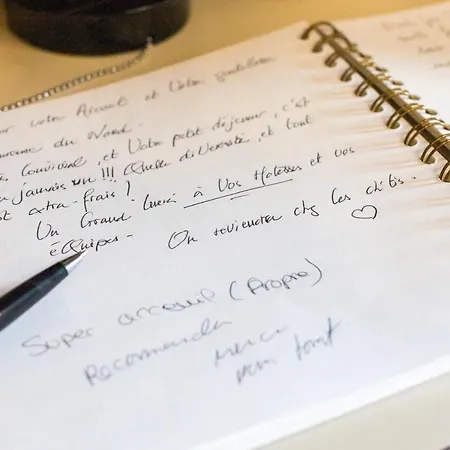 votre Accueil et Votre gentillesse
du Nord.
Convivial, et Votre petit déjeuner, c'est
jamais vu !!! Quelle diversité, et tout
est extra-frais !
Un Grand merci à Vos Hotesses et vos
équipes -
On reviendra chez les ch'tis. ♡
Super acceuil (Propre)
Recommender
Merci
pour tout